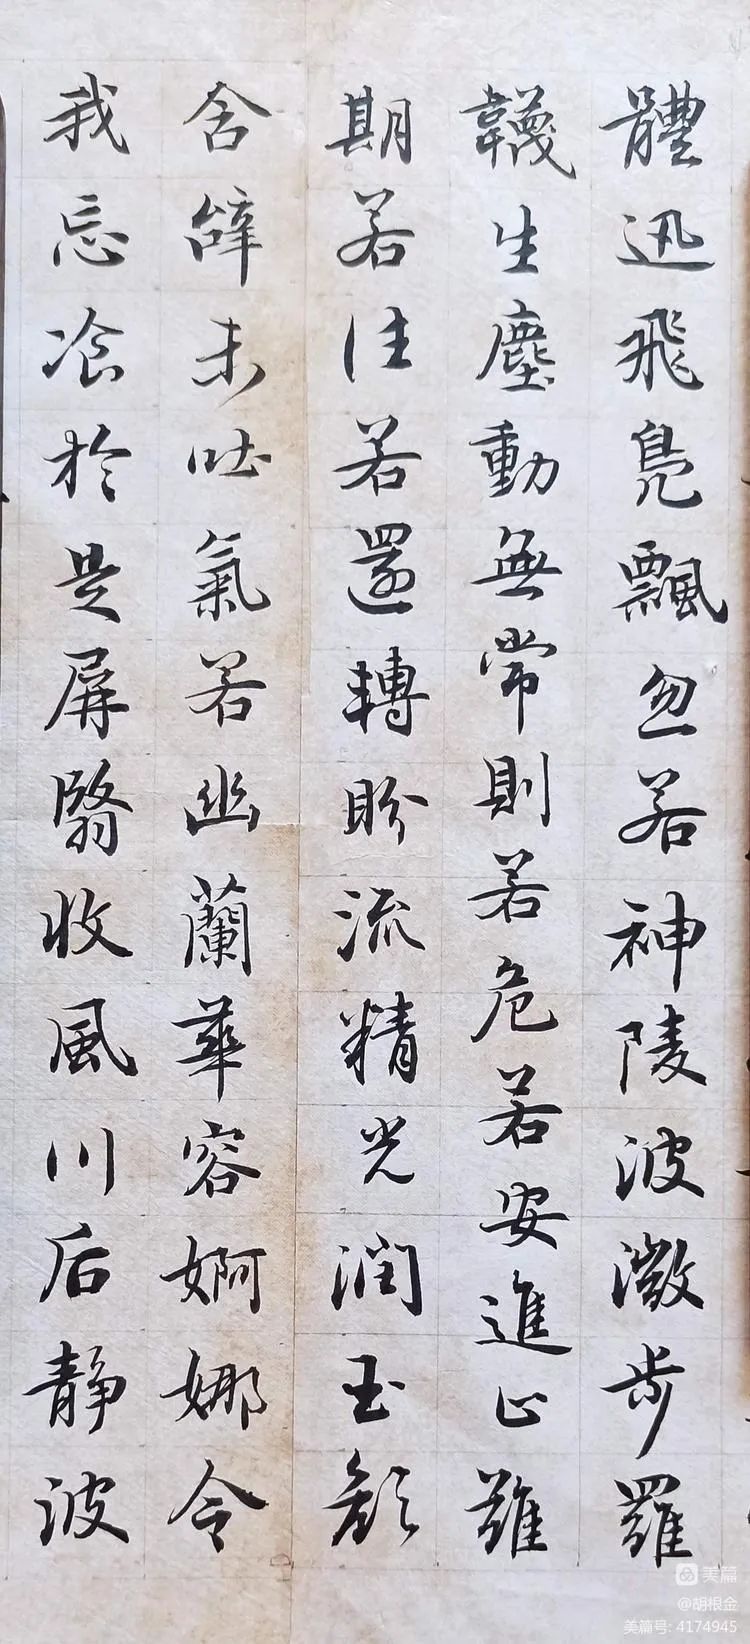 體迅飛鳧飄忽若神陵波微步羅
韈生塵動無常則若危若安進止難
期若往若還轉眄流精光潤玉顏
含辭未吐氣若幽蘭華容婀娜令
我忘飡於是屏翳收風川后静波
美篇
@胡根金
美篇号: 4174945